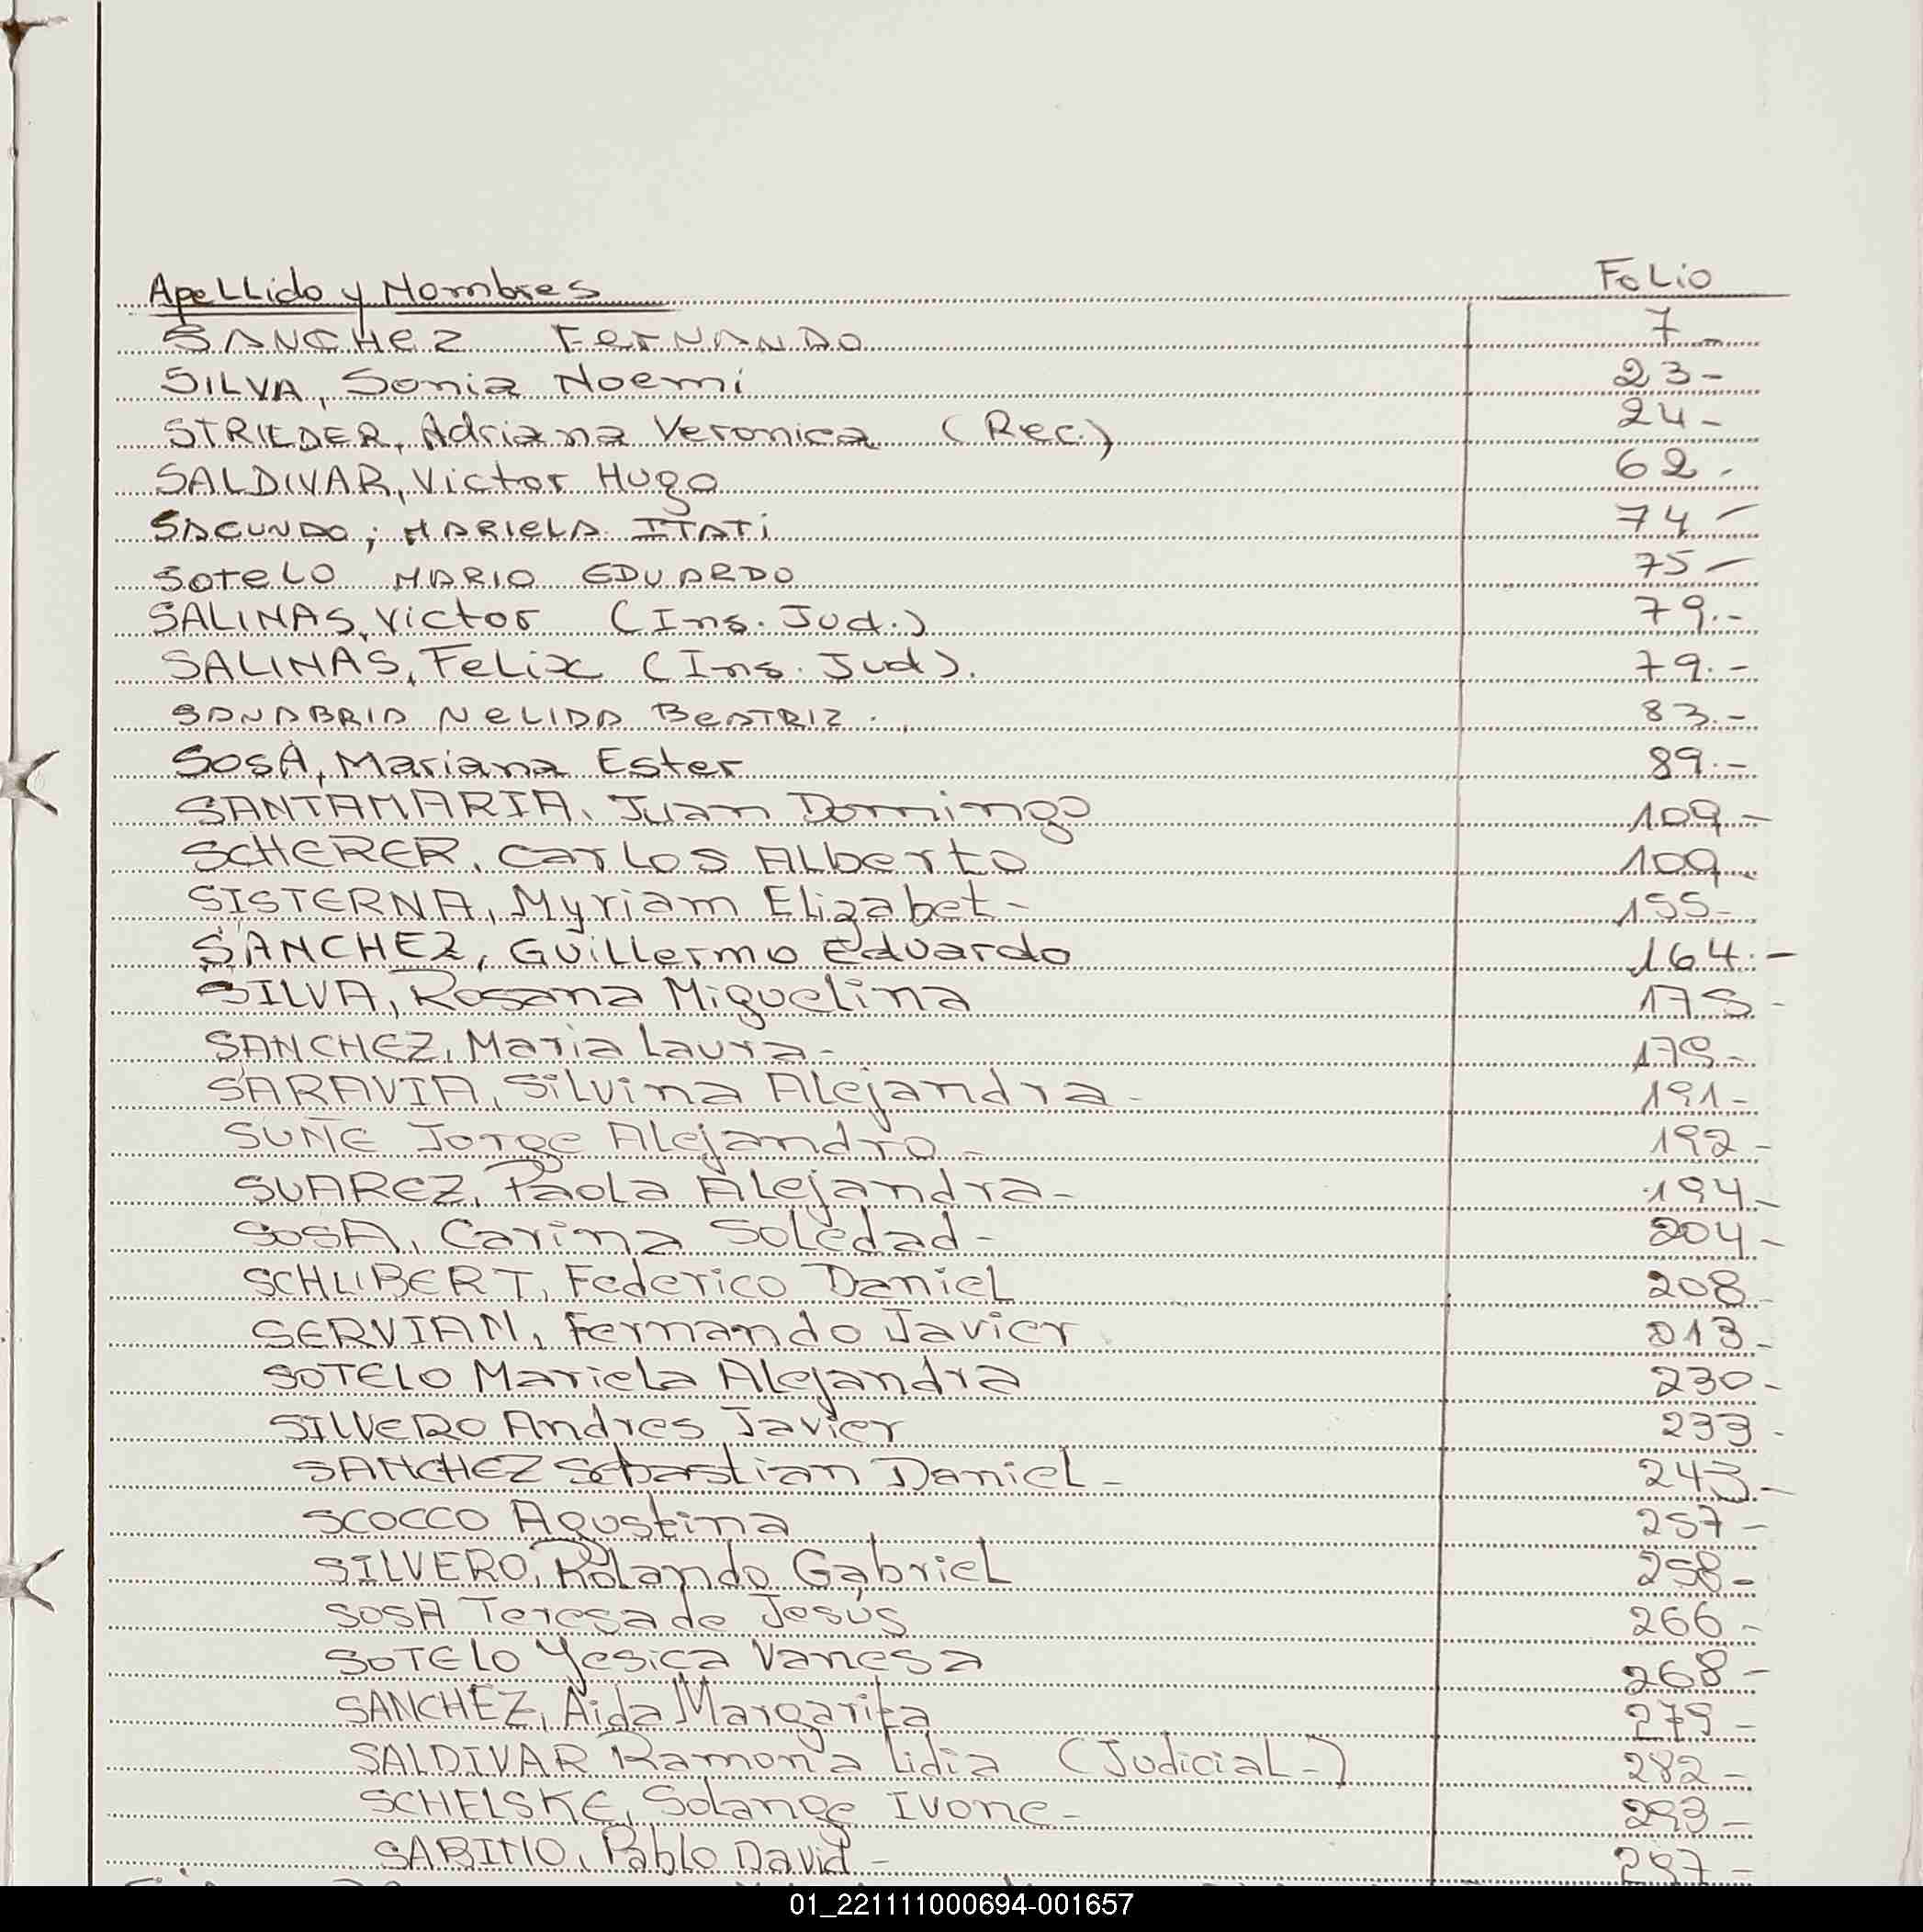 Apellido y Nombres Folio
SANCHEZ FERNANDO 7-
SILVA, Sonia Noemi 23-
STRIEDER, Adriana Veronica (Rec.) 24-
SALDIVAR, Victor Hugo 62-
SACUNDO; MARIELA ITATI 74-
SOTELO MARIO EDUARDO 75-
SALINAS, Victor (Ins. Jud.) 79.-
SALINAS, Felix (Ins. Jud). 79.-
SANABRIA NELIDA BEATRIZ. 83.-
SOSA, Mariana Ester 89.-
SANTAMARIA, Juan Domingo 109-
SCHERER, Carlos Alberto 109-
SISTERNA, Myriam Elizabet- 155-
SANCHEZ, Guillermo Eduardo 164.-
SILVA, Rosana Miguelina 175-
SANCHEZ, Maria Laura-
SARAVIA, Silvina Alejandra- 191-
SUÑE Jorge Alejandro- 192-
SUAREZ, Paola Alejandra- 194-
SOSA, Carina Soledad- 204-
SCHUBERT, Federico Daniel 208-
SERVIAN, Fernando Javier
SOTELO Mariela Alejandra 230-
SILVERO Andres Javier 233-
SANCHEZ Sebastian Daniel- 243-
SCOCCO Agustina 257-
SILVERO, Rolando Gabriel 258-
SOSA Teresa de Jesús 266-
SOTELO Yesica Vanesa 268-
SANCHEZ, Aida Margarita 279-
SALDIVAR Ramona Lidia (Judicial-) 282-
SCHELSKE, Solange Ivone- 293-
SABINO, Pablo David- 297-
01_221111000694-001657